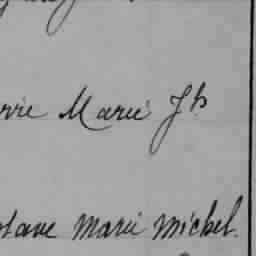 rrie Marie Jh
stave Marie Michel.